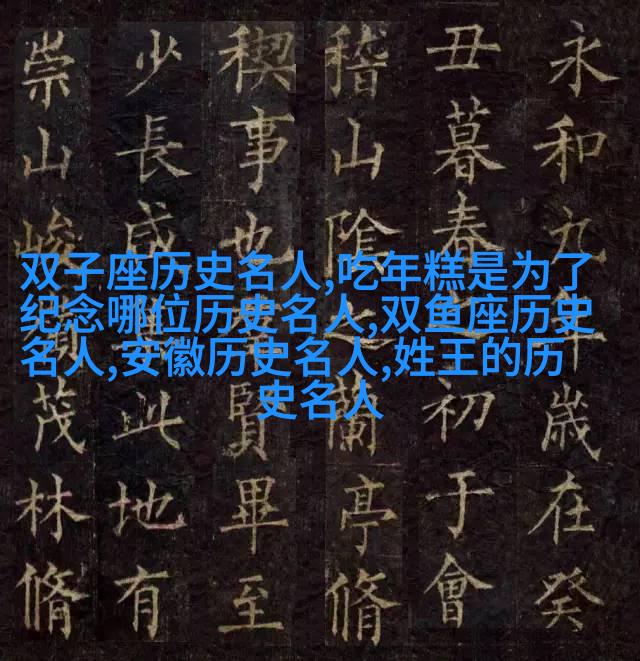 双子座历史名人,吃年糕是为了
纪念哪位历史名人,双鱼座历史
名人,安徽历史名人,姓王的历
史名人
永和九年歲在癸
丑暮春之初于會
稽山陰之蘭亭脩
稧事也賢畢至
少長咸此地有
崇山峻茂林脩